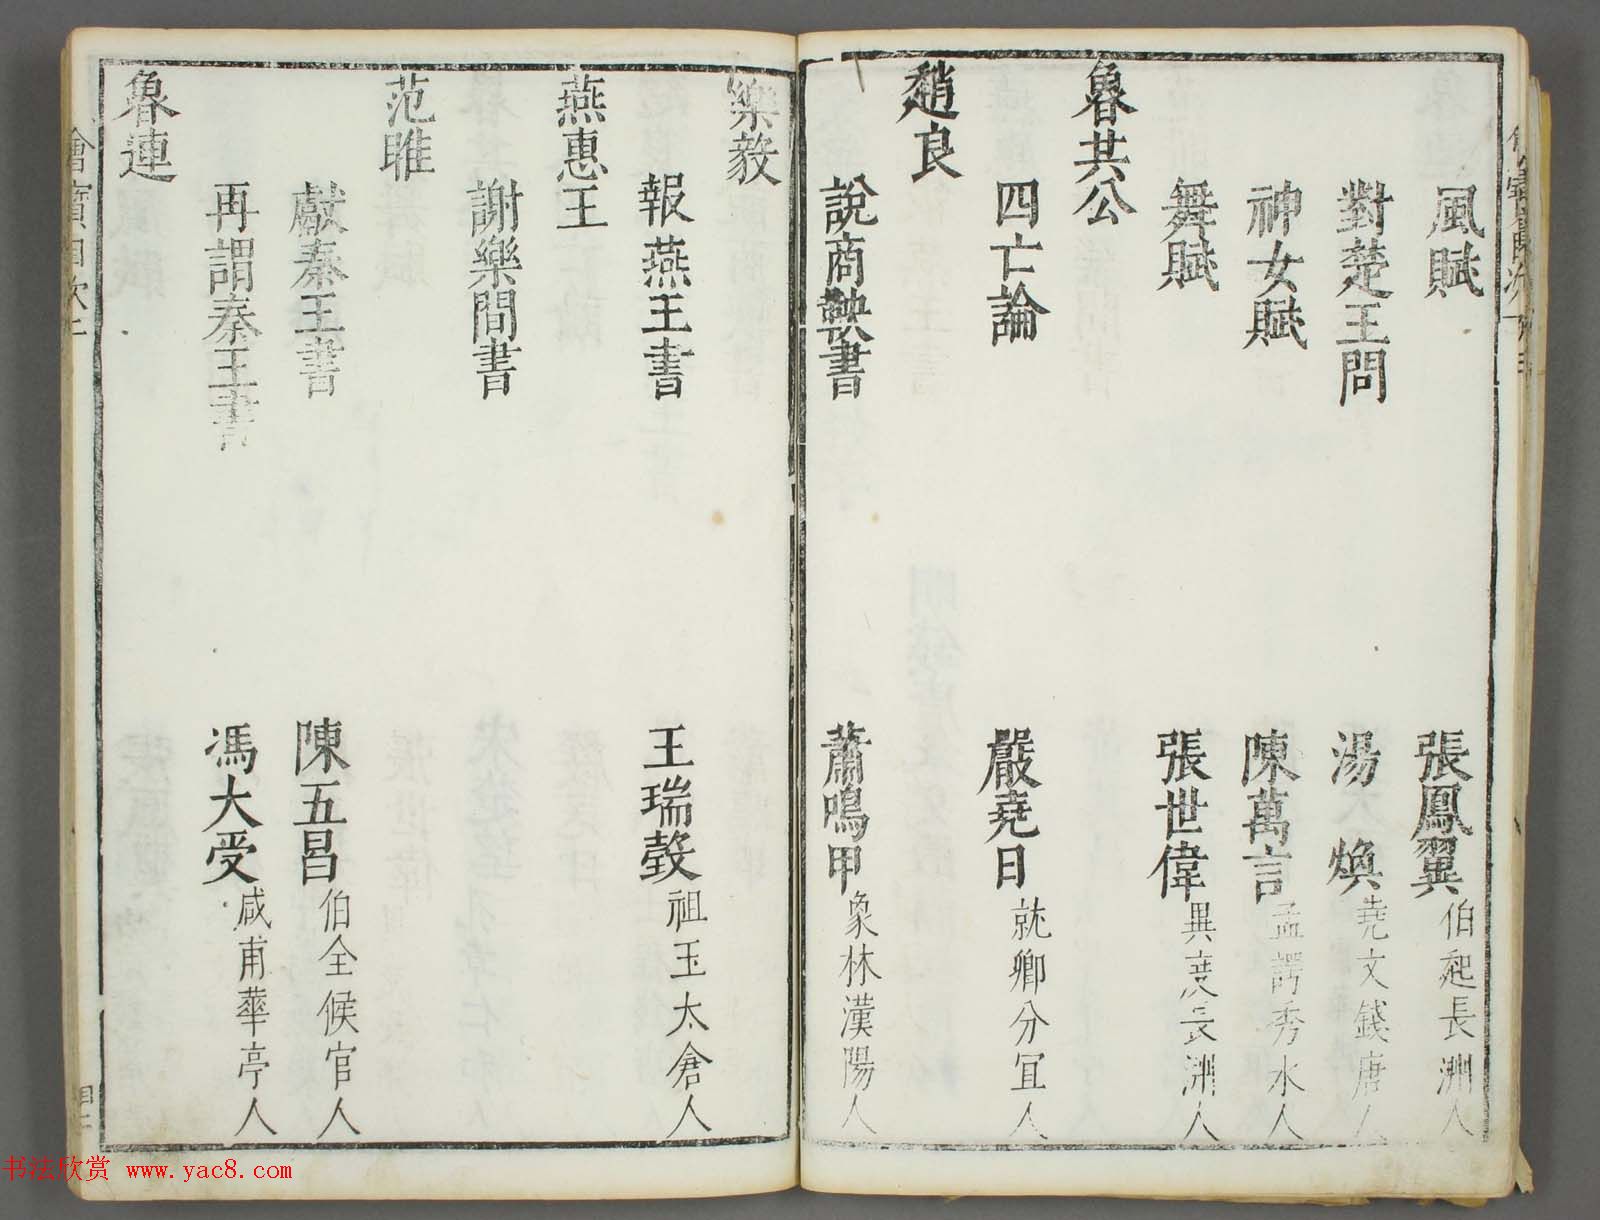 風賦 張鳳翼 伯起長洲人
對楚王問 湯煥 堯文錢唐人
神女賦 陳萬言 孟諤秀水人
舞賦 張世偉 異度長洲人
魯共公
四亡論 嚴堯日 就卿分宜人
趙良
說商鞅書 蕭鳴甲 象林漢陽人
樂毅
報燕王書 王瑞瑴 祖玉太倉人
燕惠王
謝樂間書
范雎
獻秦王書 陳五昌 伯全候官人
再謂秦王書 馮大受 咸甫華亭人
魯連
书法欣赏 www.yac8.com